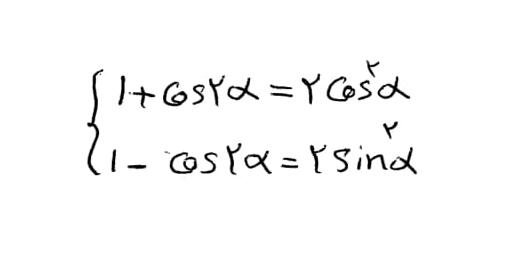 1 + cos ۲α = ۲ cos² α
1 - cos ۲α = ۲ sin² α